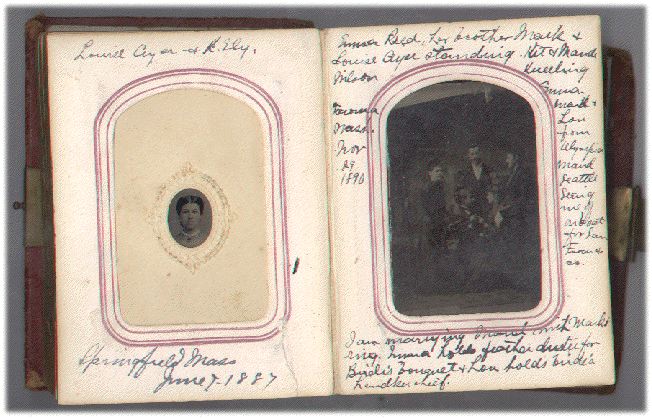 Louise Ayer & K. Ely.
Springfield Mass
June 7-1887
Emma Reed, her brother Mark &
Louise Ayer standing. Kit & Maude
Wilson
Kneeling
Tacoma
Wash.
Nov
29
1890
Emma
Mark &
Lou
from
Olympia
Maud
Seattle
Seeing
me off
on boat
for San
I am marrying Maud with Mark's
ring. Emma holds feather duster for
Bride's bouquet & Lou holds bride's
handkerchief.